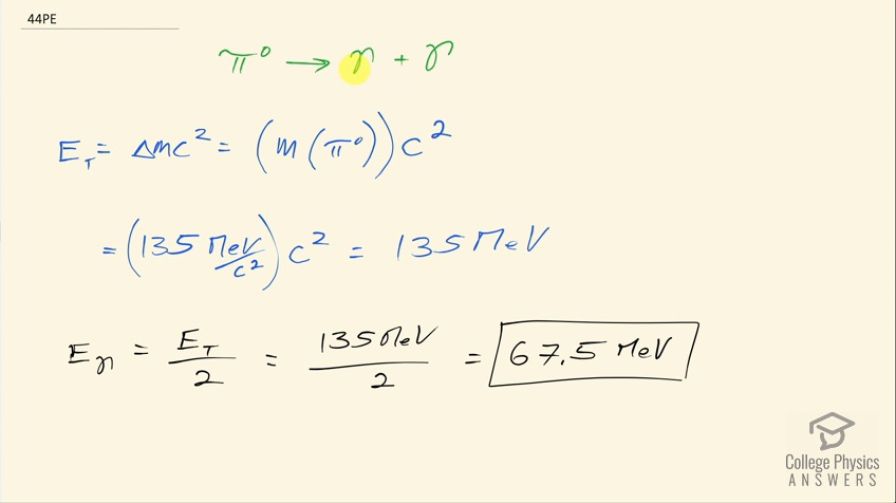 44PE
π⁰ → γ + γ
E_T = Δmc² = (m(π⁰))c²
= (135 MeV/c²)c² = 135 MeV
E_γ = E_T/2 = 135 MeV/2 = 67.5 MeV
College Physics
ANSWERS